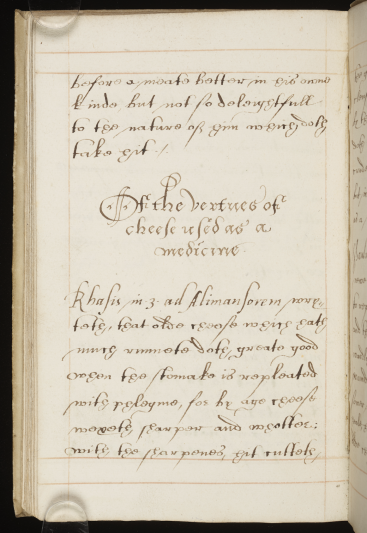 before a meate better in his owne
kinde but not so deleightfull
to the nature of him which doth
take hit ./.
Of the vertues of
cheese used as a
medicine
Rhasis in 3. ad Alimansorem wry-
teth, that olde cheese which hath
much runnete doth greate good
when the stomake is repleated
with phlegme, for by age cheese
wexeth sharper and whotter:
with the sharpenes, hit cutteth,